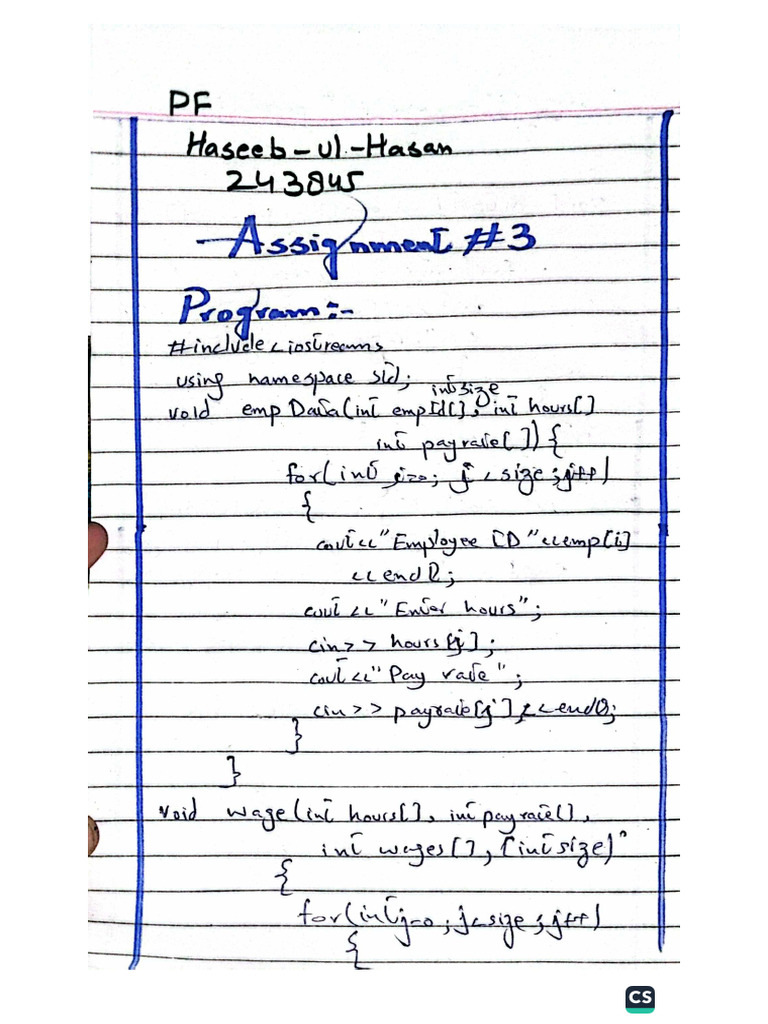 PF
Haseeb-ul-Hasan
243845
Assignment #3
Program:-
#include <iostream>
using namespace std;
int size
void empData(int empId[], int hours[]
int payrate[]) {
for(int j=0; j < size; j++)
{
cout<<"Employee ID"<<emp[i]
<<endl;
cout<<"Enter hours";
cin>> hours[j];
cout<<"Pay rate";
cin>> payrate[j]<<endl;
}
}
void wage(int hours[], int payrate[],
int wages[], int size)
{
for(int j=0; j<size; j++)
{
CS